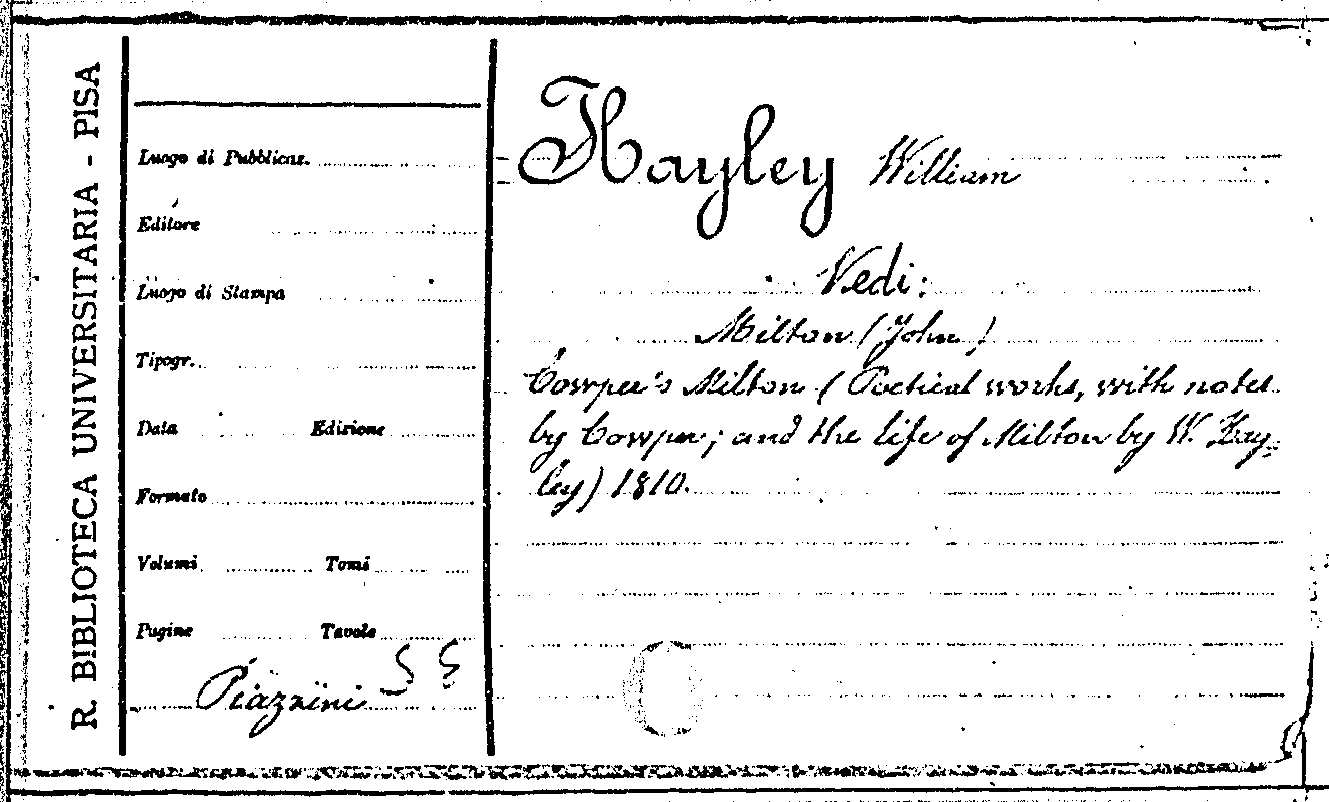 R. BIBLIOTECA UNIVERSITARIA - PISA
Luogo di Pubblicaz.
Editore
Luogo di Stampa
Tipogr.
Data Edizione
Formato
Volumi Tomi
Pagine Tavole
Piazzini
Hayley William
Vedi:
Milton (John)
Cowper's Milton (Poetical works, with notes
by Cowper; and the life of Milton by W. Hay-
ley) 1810.